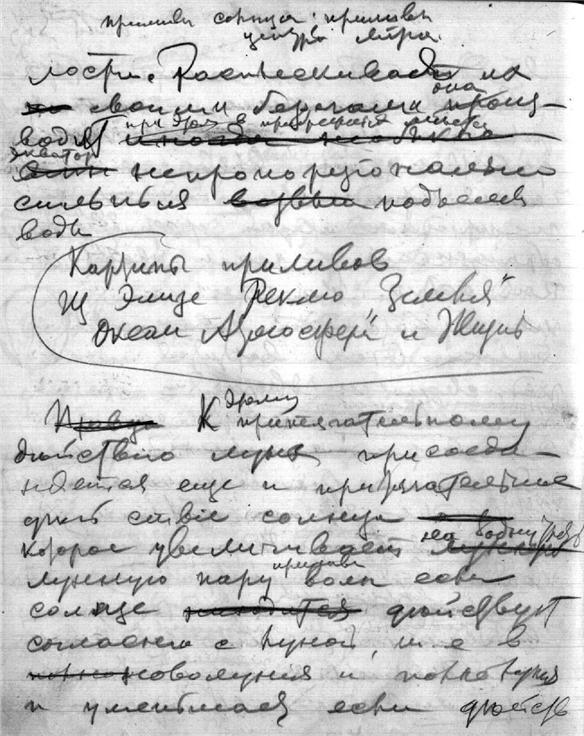 приливы солнца: приливы
центра
лости. Расплескивая на
своими берегами она произ-
водят
экватор
непропорционально
сильныя подъемы
воды
Картины приливов
из Элизе Реклю „Земля"
Океан Атмосфера" и Жизнь
К этому притягательному
действию луны присоеди-
няется еще и притягательное
действие солнца
которое увеличивает на водну
лунную пару приливн волн если
солнце действует
согласно с луной, т. е. в
новолуния и полнолуния
и уменьшает если действ